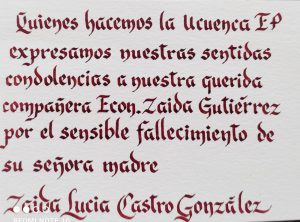 Quienes hacemos la Ucuenca EP
expresamos nuestras sentidas
condolencias a nuestra querida
compañera Econ. Zaida Gutiérrez
por el sensible fallecimiento de
su señora madre
Zaida Lucia Castro González
REDMI NOTE